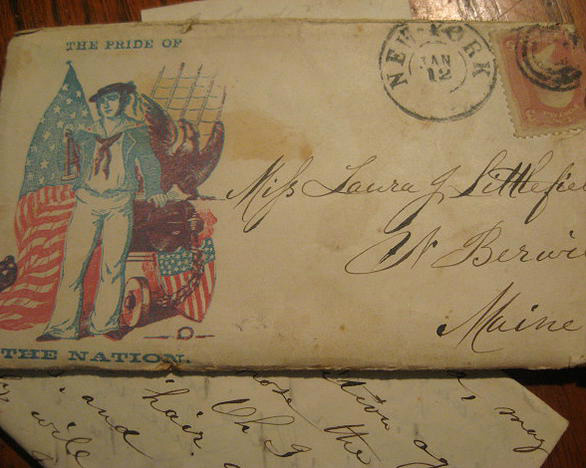 THE PRIDE OF
THE NATION.
NEW YORK
JAN
12
Miss Laura J Littlefie
N Berwi
Maine
may
the
and hair. Oh I
will